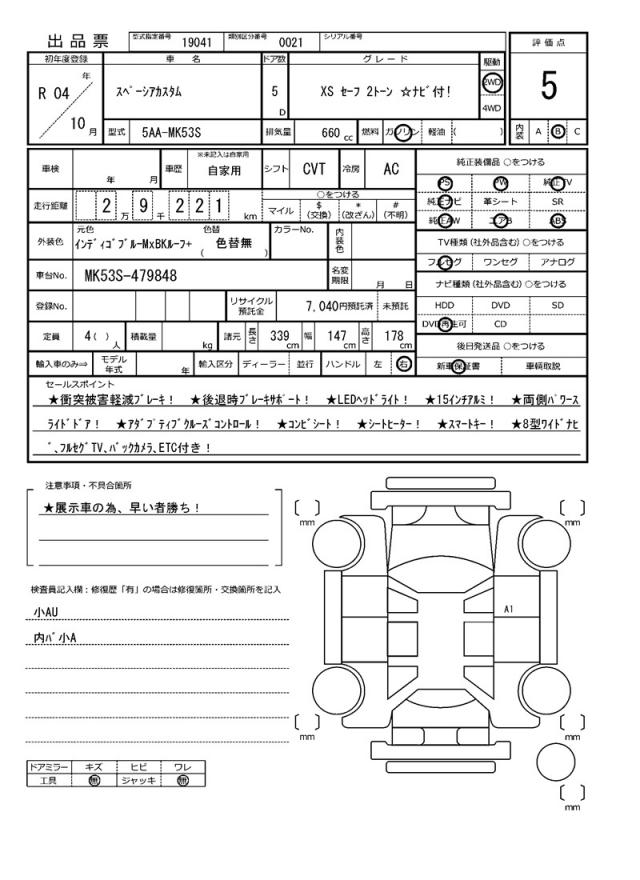 出品票 型式指定番号 19041 類別区分番号 0021 シリアル番号
評価点
初年度登録 車名 ドア数 グレード 駆動
R 04 年 スペーシアカスタム 5 D XS セーフ 2トーン ☆ナビ付! 2WD 5
4WD
10 月 型式 5AA-MK53S 排気量 660 cc 燃料 ガソリン 軽油 ( ) 内装 A B C
車検 年 月 車歴 ※未記入は自家用 自家用 シフト CVT 冷房 AC 純正装備品 ○をつける
PS PW 純正TV
走行距離 2 万 9 千 2 2 1 km ○をつける 純正ナビ 革シート SR
マイル $ (交換) * (改ざん) # (不明) 純正AW エアB ABS
外装色 元色 インディゴブルーMxBKルーフ+ 色替 ( 色替無 ) カラーNo. 内装色 TV種類 (社外品含む) ○をつける
フルセグ ワンセグ アナログ
車台No. MK53S-479848 名変期限 月 日 ナビ種類 (社外品含む) ○をつける
登録No. リサイクル預託金 7,040円預託済 未預託 HDD DVD SD
DVD再生可 CD
定員 4( ) 人 積載量 kg 諸元 長さ 339 cm 幅 147 cm 高さ 178 cm 後日発送品 ○をつける
輸入車のみ⇒ モデル年式 年 輸入区分 ディーラー 並行 ハンドル 左 右 新車保証書 車輌取説
セールスポイント
★衝突被害軽減ブレーキ! ★後退時ブレーキサポート! ★LEDヘッドライト! ★15インチアルミ! ★両側パワース
ライドドア! ★アダプティブクルーズコントロール! ★コンビシート! ★シートヒーター! ★スマートキー! ★8型ワイドナビ
゛、フルセグTV、バックカメラ、ETC付き!
注意事項・不具合箇所
★展示車の為、早い者勝ち!
mm mm
検査員記入欄:修復歴「有」の場合は修復箇所・交換箇所を記入
小AU
A1
内バ小A
mm mm
ドアミラー キズ ヒビ ワレ
工具 無 ジャッキ 無
mm